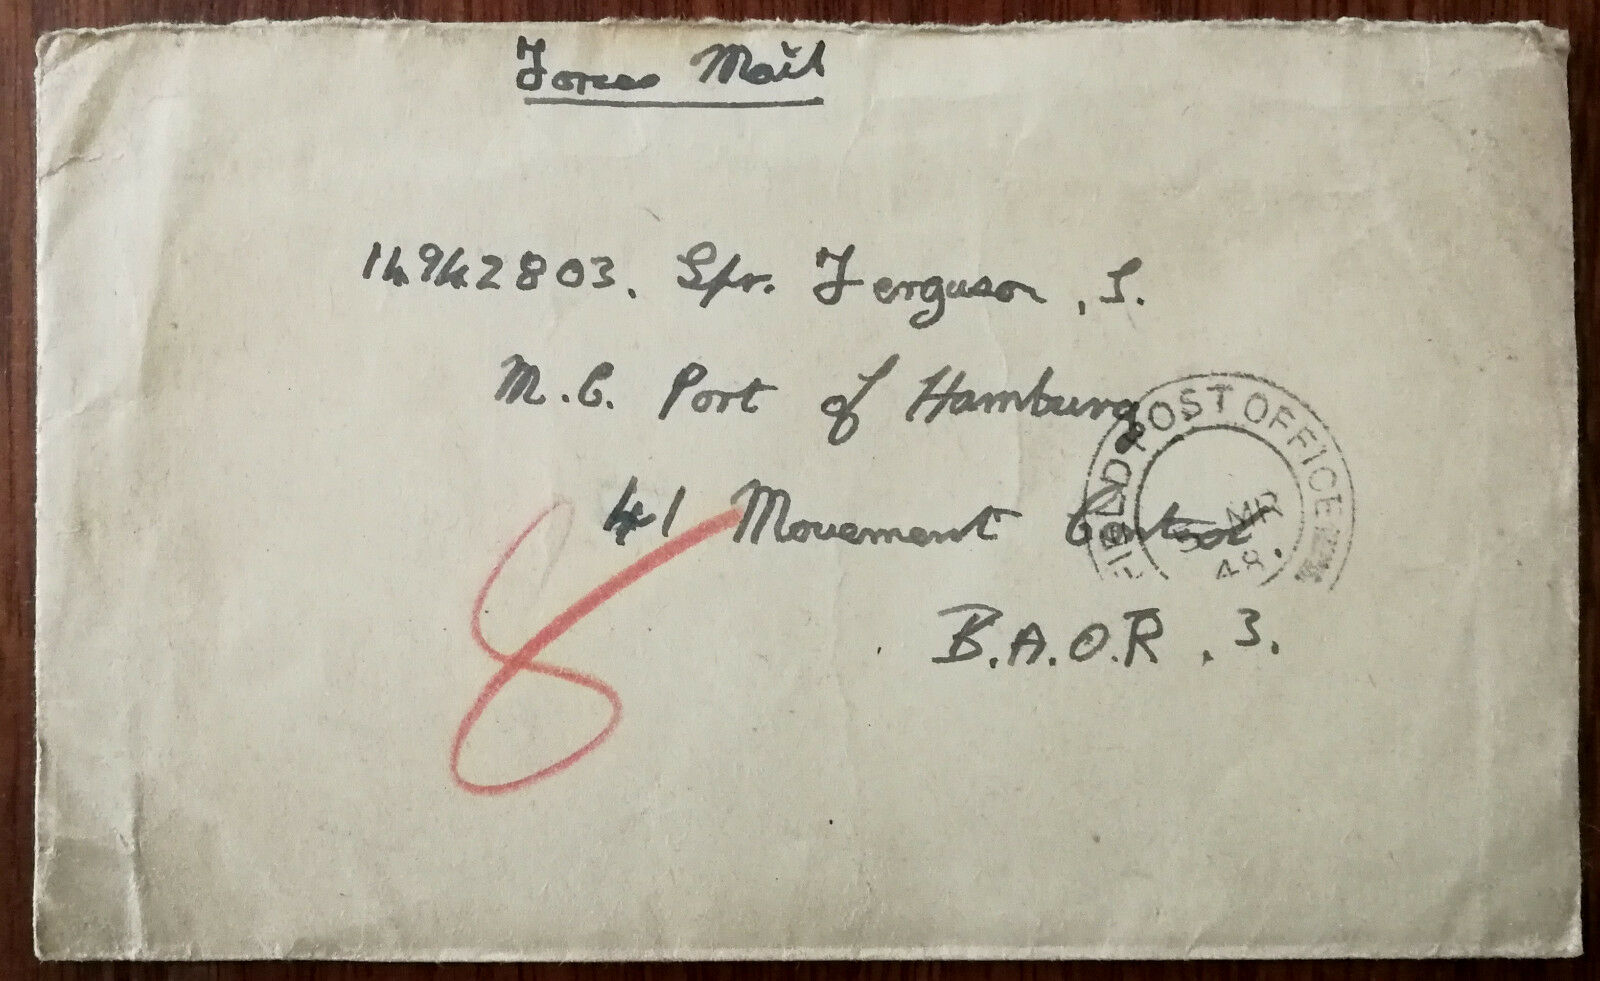 Forces Mail
14942803. Spr. Ferguson, S.
M.C. Port of Hamburg
41 Movement Control.
B.A.O.R. 3.
FIELD POST OFFICE
5 MR
48
8